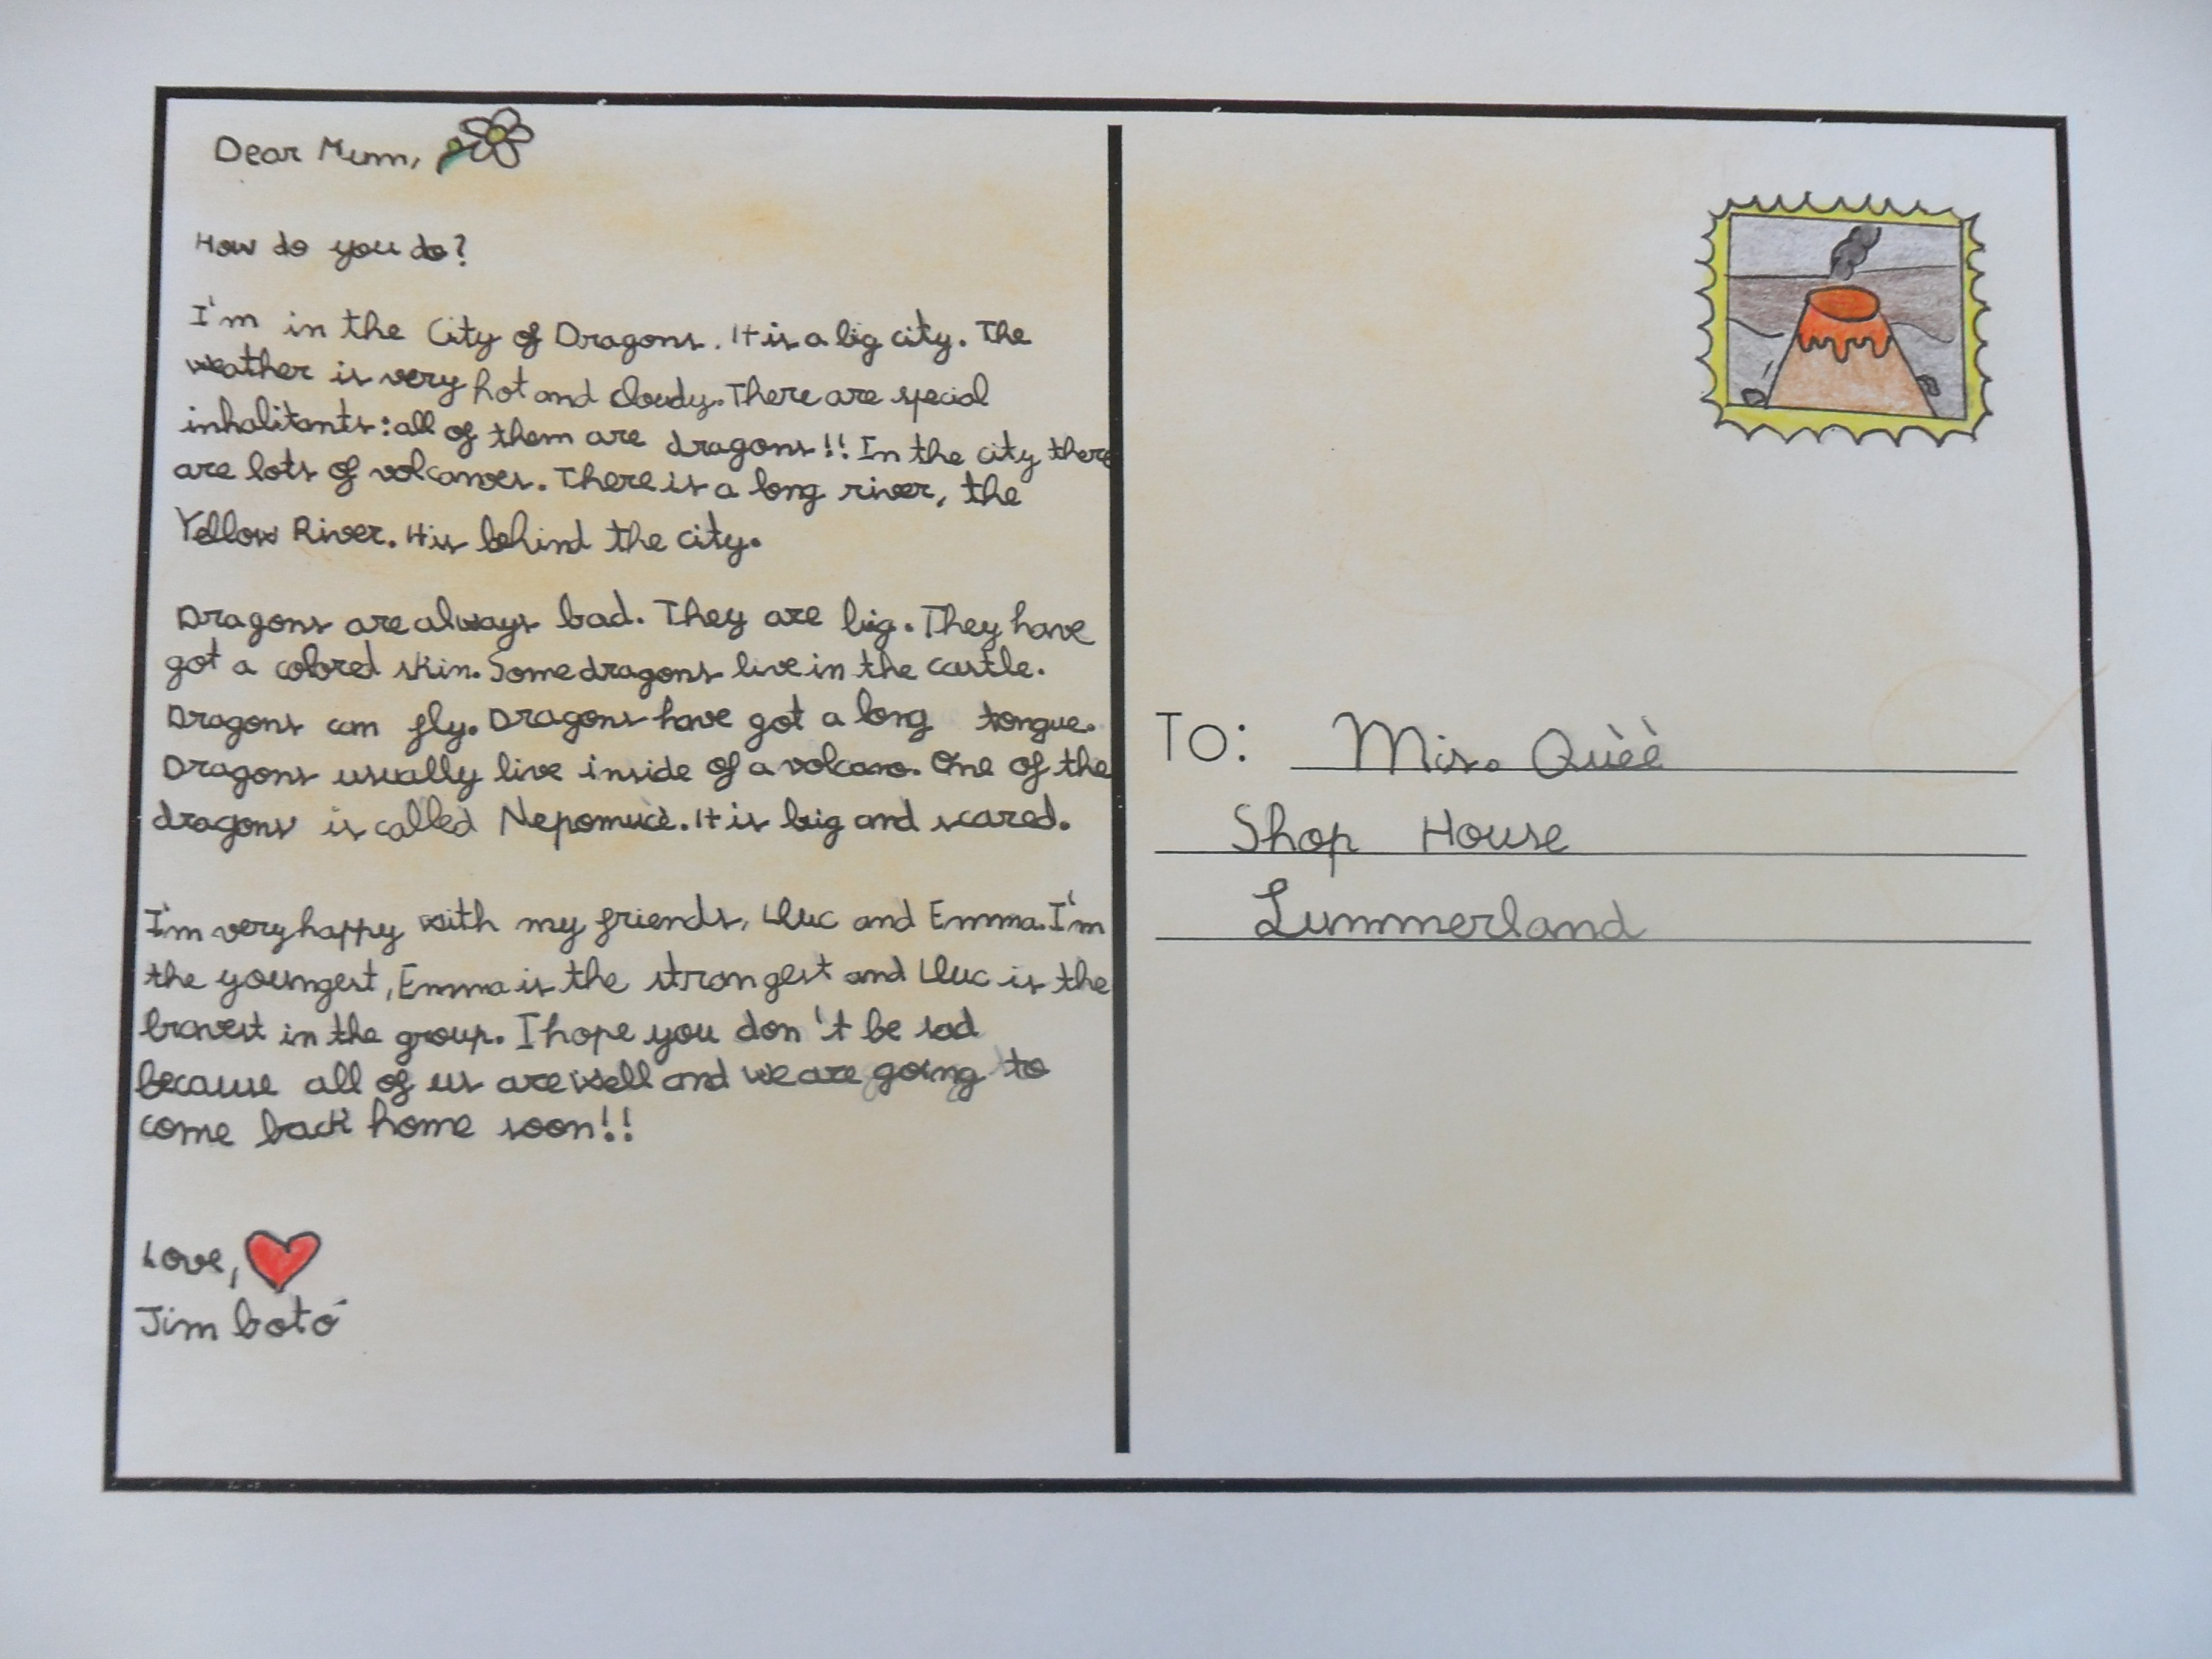 Dear Mum,
How do you do?
I'm in the City of Dragons. It is a big city. The
weather is very hot and cloudy. There are special
inhabitants: all of them are dragons!! In the city there
are lots of volcanoes. There is a long river, the
Yellow River. It is behind the city.
Dragons are always bad. They are big. They have
got a colored skin. Some dragons live in the castle.
Dragons can fly. Dragons have got a long tongue.
Dragons usually live inside of a volcano. One of the
dragons is called Nepomucè. It is big and scared.
I'm very happy with my friends, Lluc and Emma. I'm
the youngest, Emma is the strongest and Lluc is the
bravest in the group. I hope you don't be sad
because all of us are well and we are going to
come back home soon!!
Love,
Jim botó
TO: Mis. Quèè
Shop House
Lummerland